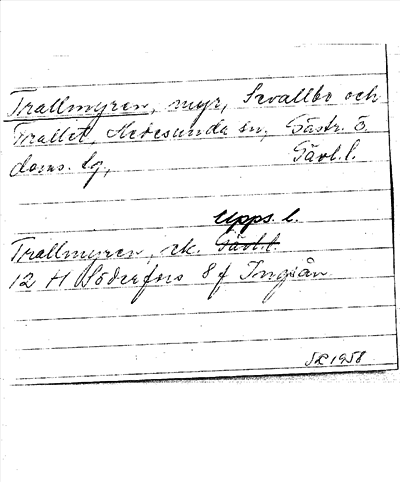 Trallmyren, myr, Sevallbo och
Trallet, Hedesunda sn, Gästr. Ö.
doms. lg,
Gävl. l.
Upps. l.
Trallmyren, ek. Gävl. l.
12 H Söderfors 8 f Ingsån
1958